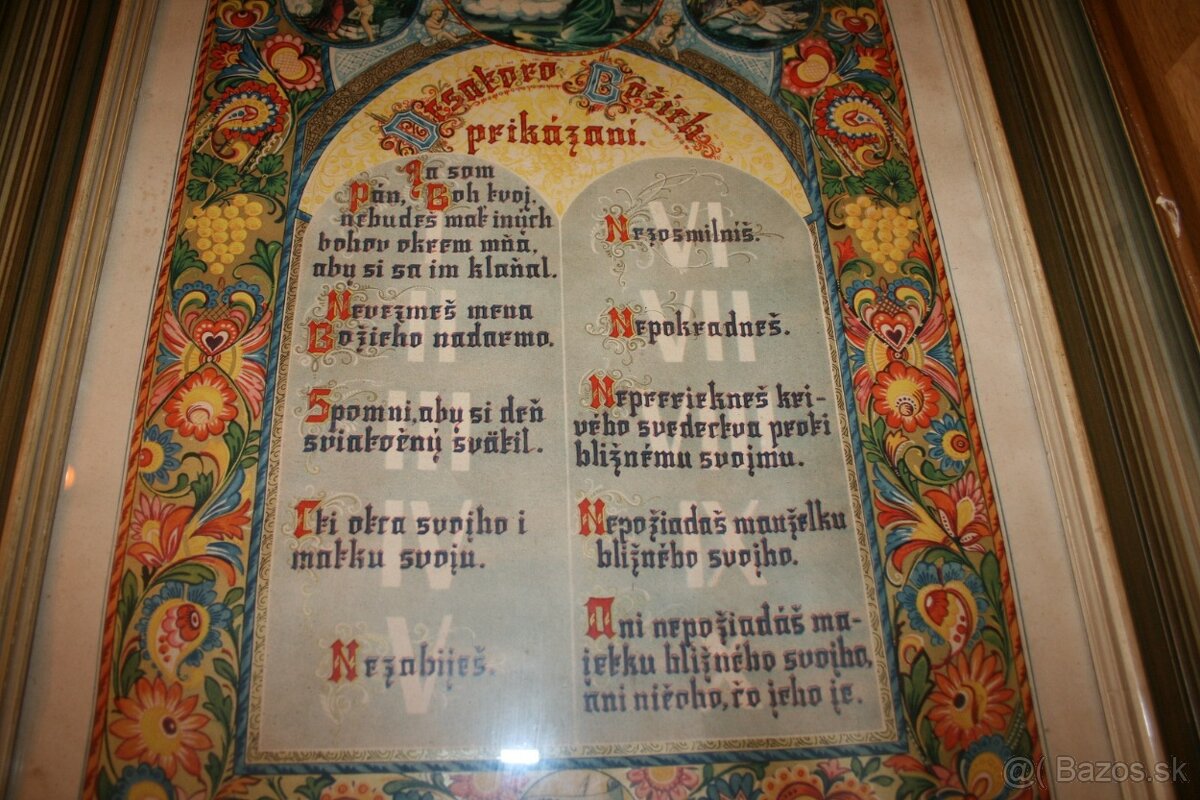 Desatoro Božích
prikázaní.
Ja som
Pán, Boh tvoj,
nebudeš mať iných
bohov okrem mňa,
aby si sa im klaňal.
II
Nevezmeš mena
Božieho nadarmo.
III
Spomni, aby si deň
sviatočný svätil.
IV
Cti otca svojho i
matku svoju.
V
Nezabiješ.
VI
Nezosmilníš.
VII
Nepokradneš.
Nepreriekneš kri-
vého svedectva proti
bližnému svojmu.
IX
Nepožiadaš manželku
bližného svojho.
Ani nepožiadáš ma-
jetku bližného svojho,
ani ničoho, čo jeho je.
@( Bazos.sk